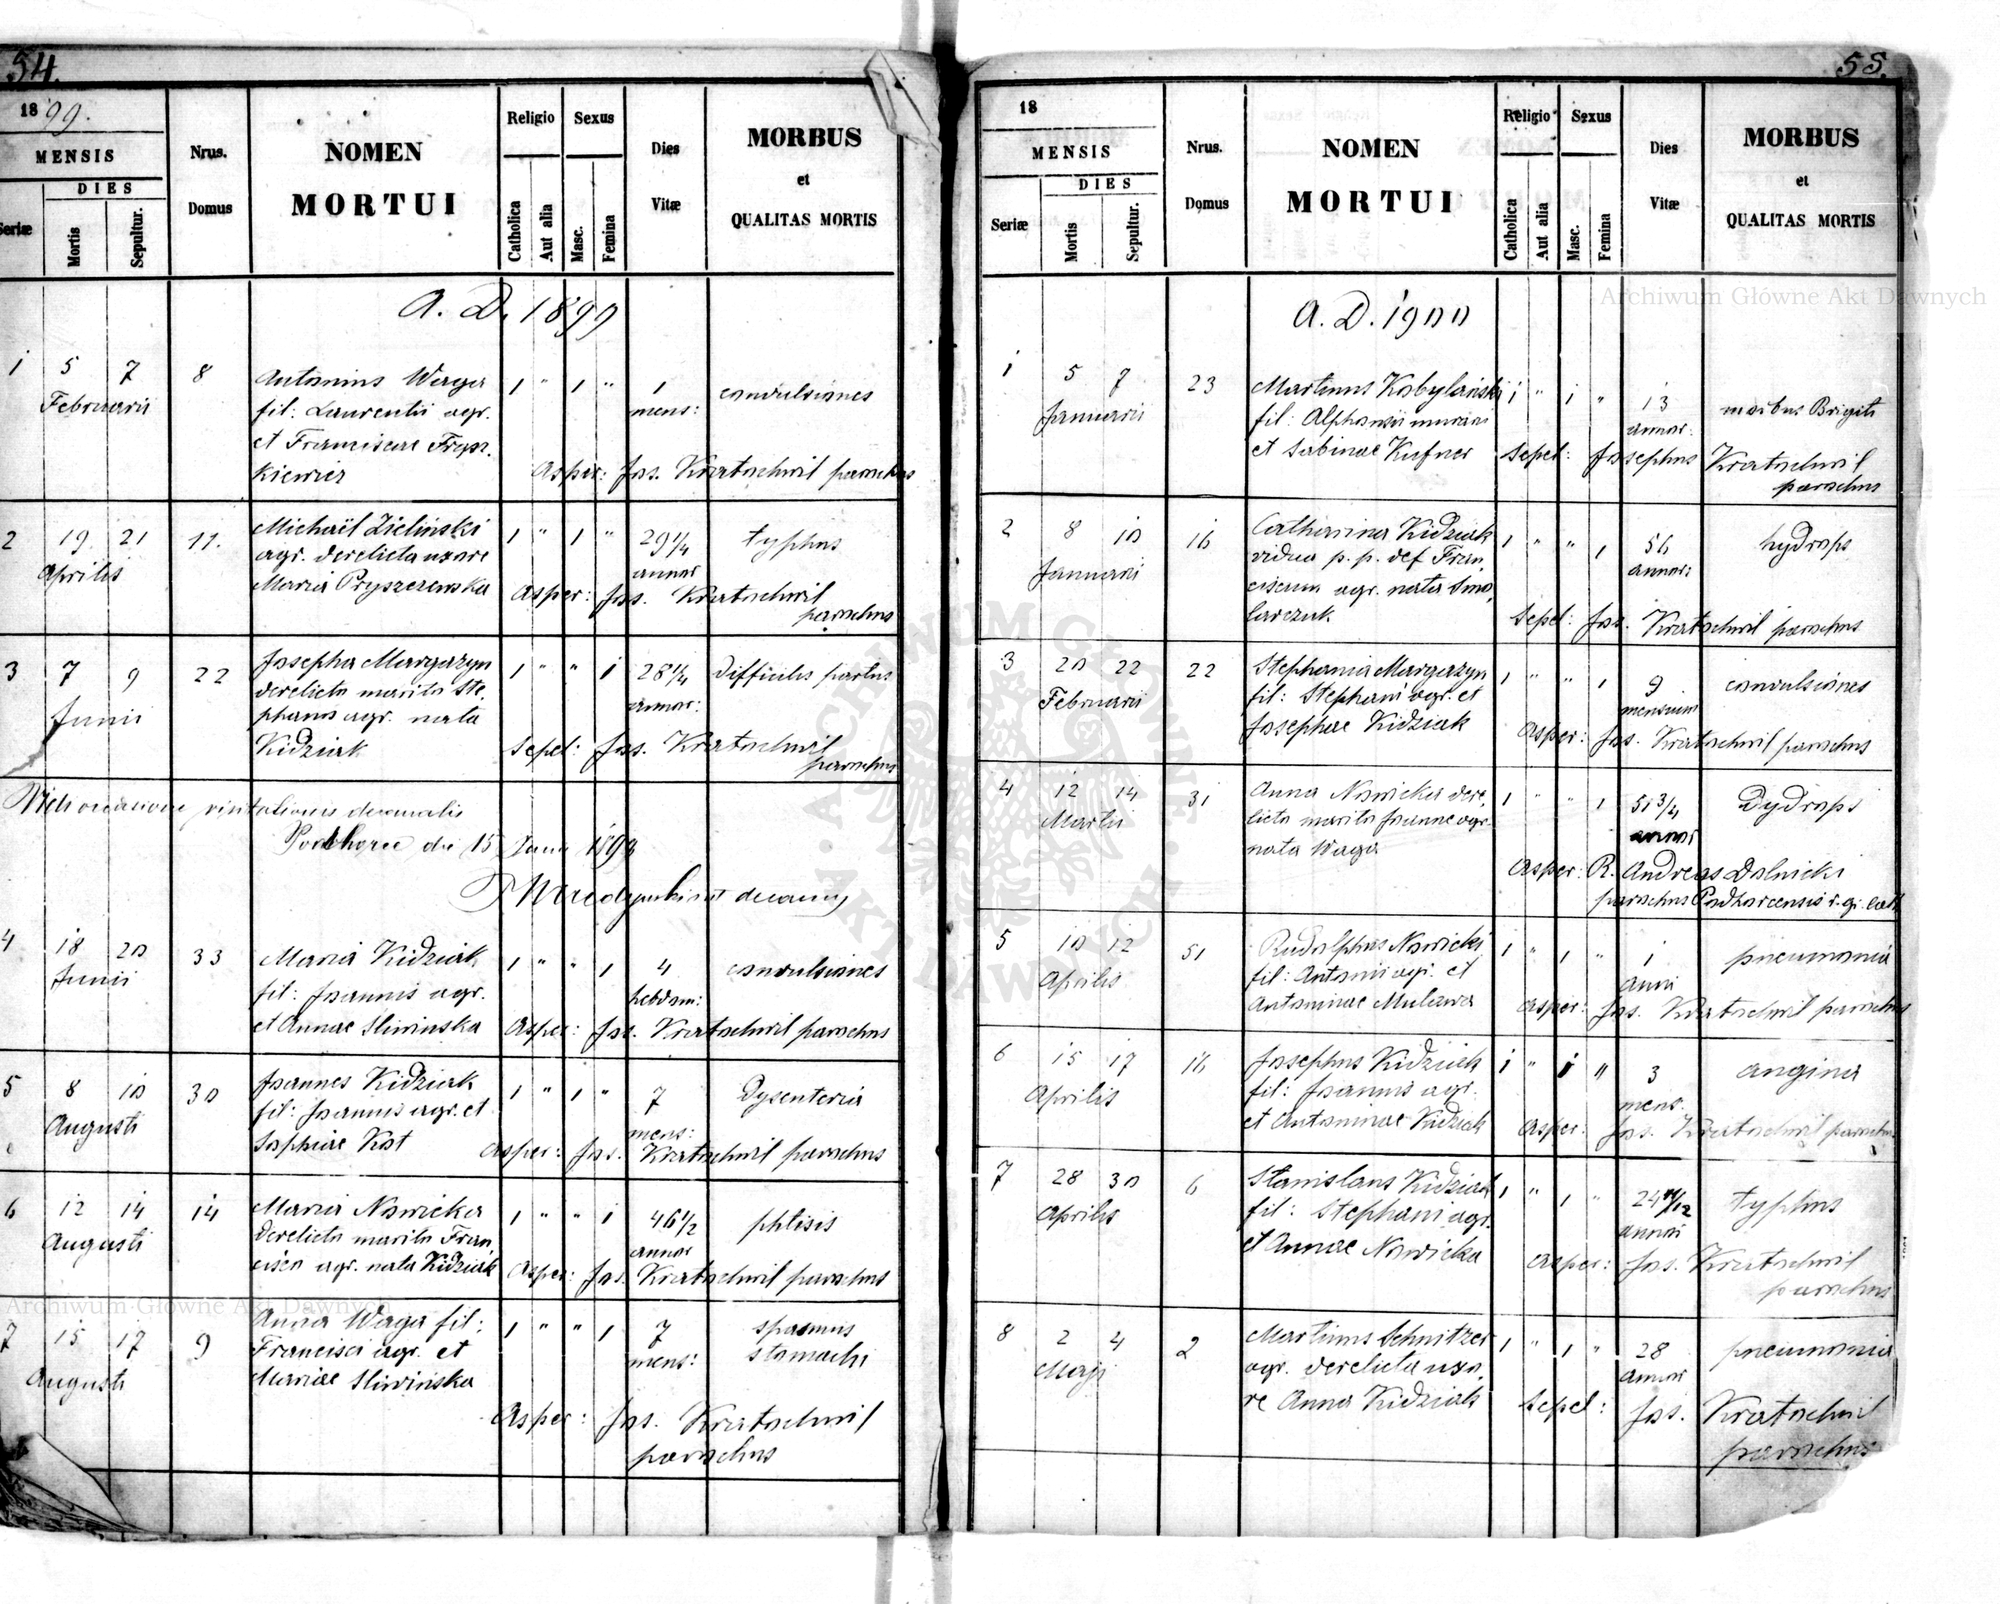 54.
1899.
MENSIS
DIES
Seriæ
Mortis
Sepultur.
Nrus.
Domus
NOMEN
MORTUI
Religio
Catholica
Aut alia
Sexus
Masc.
Femina
Dies
Vitæ
MORBUS
et
QUALITAS MORTIS
A. D. 1899
1 5 7 8 Antonius Waga 1 " 1 " 1 convulsiones
Februarii fil: Laurentii agr. mens:
et Franciscae Fran-
kiewicz Asper: Jos. Kratochwil parochus
2 19 21 11. Michaël Zieliński 1 " 1 " 29 1/4 typhus
Aprilis agr. derelicta uxore annor
Maria Pryszczewska Asper: Jos. Kratochwil
parochus
3 7 9 22 Josepha Margazyn 1 " " 1 28 1/4 difficilis partus
Junii derelicto marito Ste-
phano agr. nata annor:
Kidziak Sepel: Jos. Kratochwil
parochus
Vidi occasione visitationis decanalis
Podhorce die 15 Junii 1899
decanus
4 18 20 33 Maria Kidziak 1 " " 1 4 convulsiones
Junii fil: Joannis agr. hebdom:
et Annae Sliwinska Asper: Jos. Kratochwil parochus
5 8 10 30 Joannes Kidziak 1 " 1 " 7 Dysenteria
Augusti fil: Joannis agr. et mens:
Sophiae Kot Asper: Jos. Kratochwil parochus
6 12 14 14 Maria Nowicka 1 " " 1 46 1/2 phtisis
Augusti derelicto marito Fran annor
cisco agr. nata Kidziak Asper: Jos. Kratochwil parochus
7 15 17 9 Anna Waga fil: 1 " " 1 7 spasmus
Augusti Francisci agr. et mens: stomachi
Mariae Sliwińska
Asper: Jos. Kratochwil
parochus
55.
18
MENSIS
DIES
Seriæ
Mortis
Sepultur.
Nrus.
Domus
NOMEN
MORTUI
Religio
Catholica
Aut alia
Sexus
Masc.
Femina
Dies
Vitæ
MORBUS
et
QUALITAS MORTIS
A. D. 1900
1 5 7 23 Martinus Kobylański 1 " 1 " 13 morbus Brigiti
Januarii fil: Alphonsii murarii annor:
et Sabinae Kufner Sepel: Josephus Kratochwil
parochus
2 8 10 16 Catharina Kidziak 1 " " 1 56 hydrops
Januarii vidua p. p. def Fran- annor:
ciscum agr. nata Smo-
larczuk Sepel: Jos. Kratochwil parochus
3 20 22 22 Stephania Margazyn 1 " " 1 9 convulsiones
Februarii fil: Stephani agr. et mensium
Josephae Kidziak Asper: Jos. Kratochwil parochus
4 12 14 31 Anna Nowicka dere- 1 " " 1 51 3/4 Dydrops
Martii licto marito Joanne agr. annor
nata Waga
Asper: R. Andreas Dolnicki
parochus Podhorcensis r. gr. cath
5 10 12 51 Rudolphus Nowicki 1 " 1 " 1 pneumonia
Aprilis fil: Antonii agr. et anni
Antoninae Mulawa Asper: Jos. Kratochwil parochus
6 15 17 16 Josephus Kidziak 1 " 1 " 3 angina
Aprilis fil: Joannis agr. mens:
et Antoninae Kidziak Asper: Jos. Kratochwil parochus
7 28 30 6 Stanislaus Kidziak 1 " 1 " 24 typhus
Aprilis fil: Stephani agr. annor
et Annae Nowicka Asper: Jos. Kratochwil
parochus
8 2 4 2 Martinus Schnitzer 1 " 1 " 28 pneumonia
Maji agr. derelicta uxo- annor
re Anna Kidziak Sepel: Jos. Kratochwil
parochus
Archiwum Główne Akt Dawnych
Archiwum Główne Akt Dawnych
ARCHIWUM GŁÓWNE AKT DAWNYCH